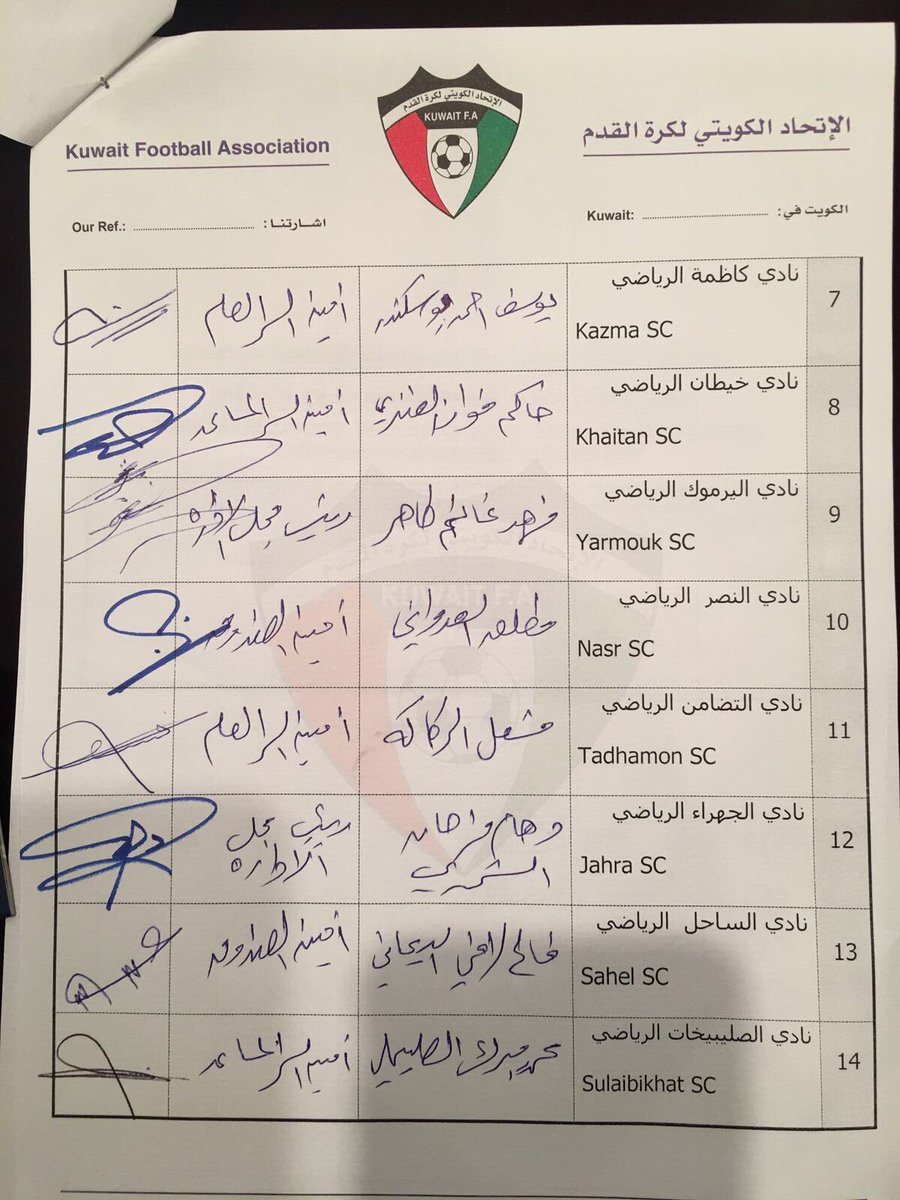 الإتحاد الكويتي لكرة القدم
KUWAIT F.A
Kuwait Football Association
الإتحاد الكويتي لكرة القدم
Our Ref.: اشارتنا :
Kuwait: الكويت في:
7
نادي كاظمة الرياضي
Kazma SC
يوسف احمد بوسكندر
أمين السر العام
8
نادي خيطان الرياضي
Khaitan SC
حاكم فواز
أمين السر المساعد
9
نادي اليرموك الرياضي
Yarmouk SC
فهد غانم طاهر
رئيس مجلس الادارة
10
نادي النصر الرياضي
Nasr SC
مطلق العدواني
أمين الصندوق
11
نادي التضامن الرياضي
Tadhamon SC
مشعل
أمين السر العام
12
نادي الجهراء الرياضي
Jahra SC
الشمري
رئيس مجلس
الادارة
13
نادي الساحل الرياضي
Sahel SC
أمين الصندوق
14
نادي الصليبيخات الرياضي
Sulaibikhat SC
محمد مبارك
أمين السر المساعد
KUWAIT F.A